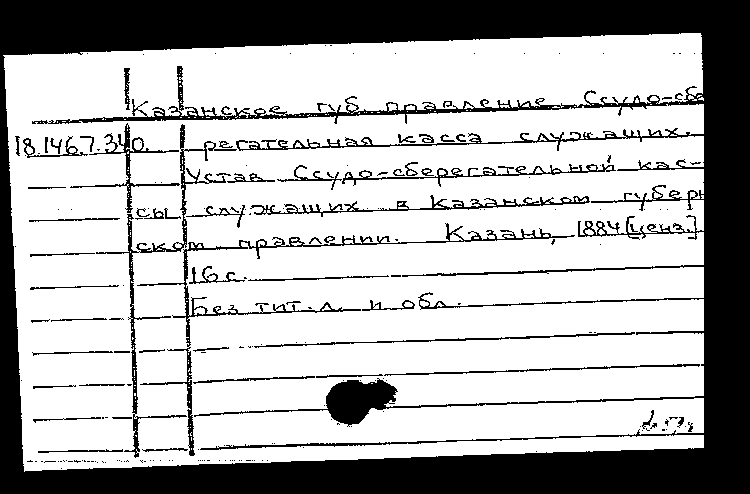 Казанское губ. правление. Ссудо-сбе
18.146.7.340. регательная касса служащих.
Устав Ссудо-сберегательной кас-
сы служащих в Казанском губерн
ском правлении. Казань, 1884 [ценз.]
16 с.
Без тит. л. и обл.